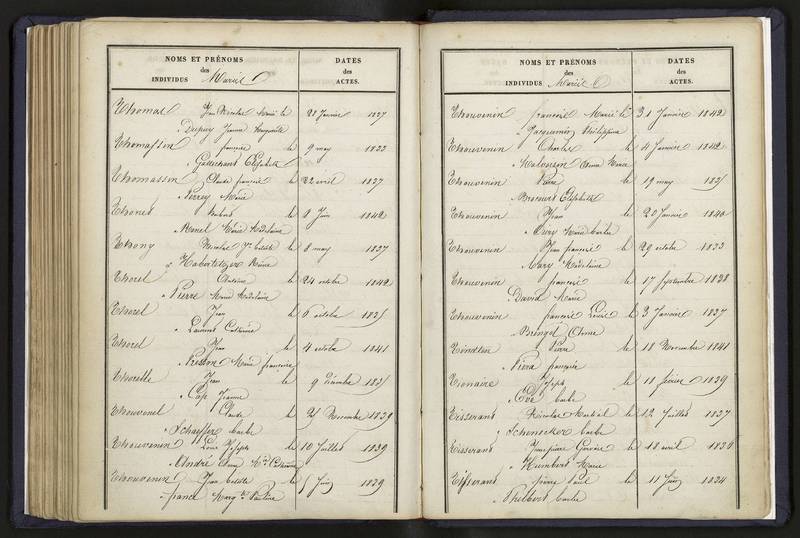 NOMS ET PRÉNOMS
des
INDIVIDUS Mariés
DATES
des
ACTES.
Thomas Jean Nicolas Marié le 28 Janvier 1837
a Dupuy Jeanne Marguerite
Thomassin françois le 9 may 1833
a Elisabeth
Thomassin Claude françois le 22 avril 1837
a Perrey Marie
Thonet le 8 Juin 1842
a Marcel Marie Madelaine
Thony Nicolas Jn bte le 8 may 1837
a Marie
Thorel Antoine le 24 octobre 1842
a Pierre Marie Madelaine
Thorel Jean le 6 octobre 1835
a Laurent Catherine
Thorel Jean le 4 octobre 1841
a Marie françoise
Thorelle Jean le 9 Décembre 1835
a Jeanne
Thouvenel Claude le 25 Novembre 1839
a Schaeffer barbe
Thouvenin Louis Joseph le 10 Juillet 1839
a André Anne Mie Catherine
Thouvenin Jean le 5 Juin 1839
a france Marg te Pauline
NOMS ET PRÉNOMS
des
INDIVIDUS Mariés
DATES
des
ACTES.
Thouvenin françois Marié le 31 Janvier 1842
a Jacquemin Philippine
Thouvenin Charles le 4 Janvier 1842
a Anne Marie
Thouvenin Pierre le 19 may 1835
a Elisabeth
Thouvenin Jean le 20 Janvier 1840
a Marie barbe
Thouvenin Jean françois le 29 octobre 1833
a Mary Madelaine
Thouvenin françois le 17 Septembre 1838
a David Marie
Thouvenin françois Louis le 3 Janvier 1837
a Bringel Anne
Pierre le 18 Novembre 1841
a françoise
Tionaire Joseph le 11 février 1839
a barbe
Tisserand Nicolas le 12 Juillet 1837
a Schenecker barbe
Tisserand Jean pierre le 18 avril
a Humbert Marie
Tisserand pierre Paul le 11 Juin 1834
a Philbert barbe